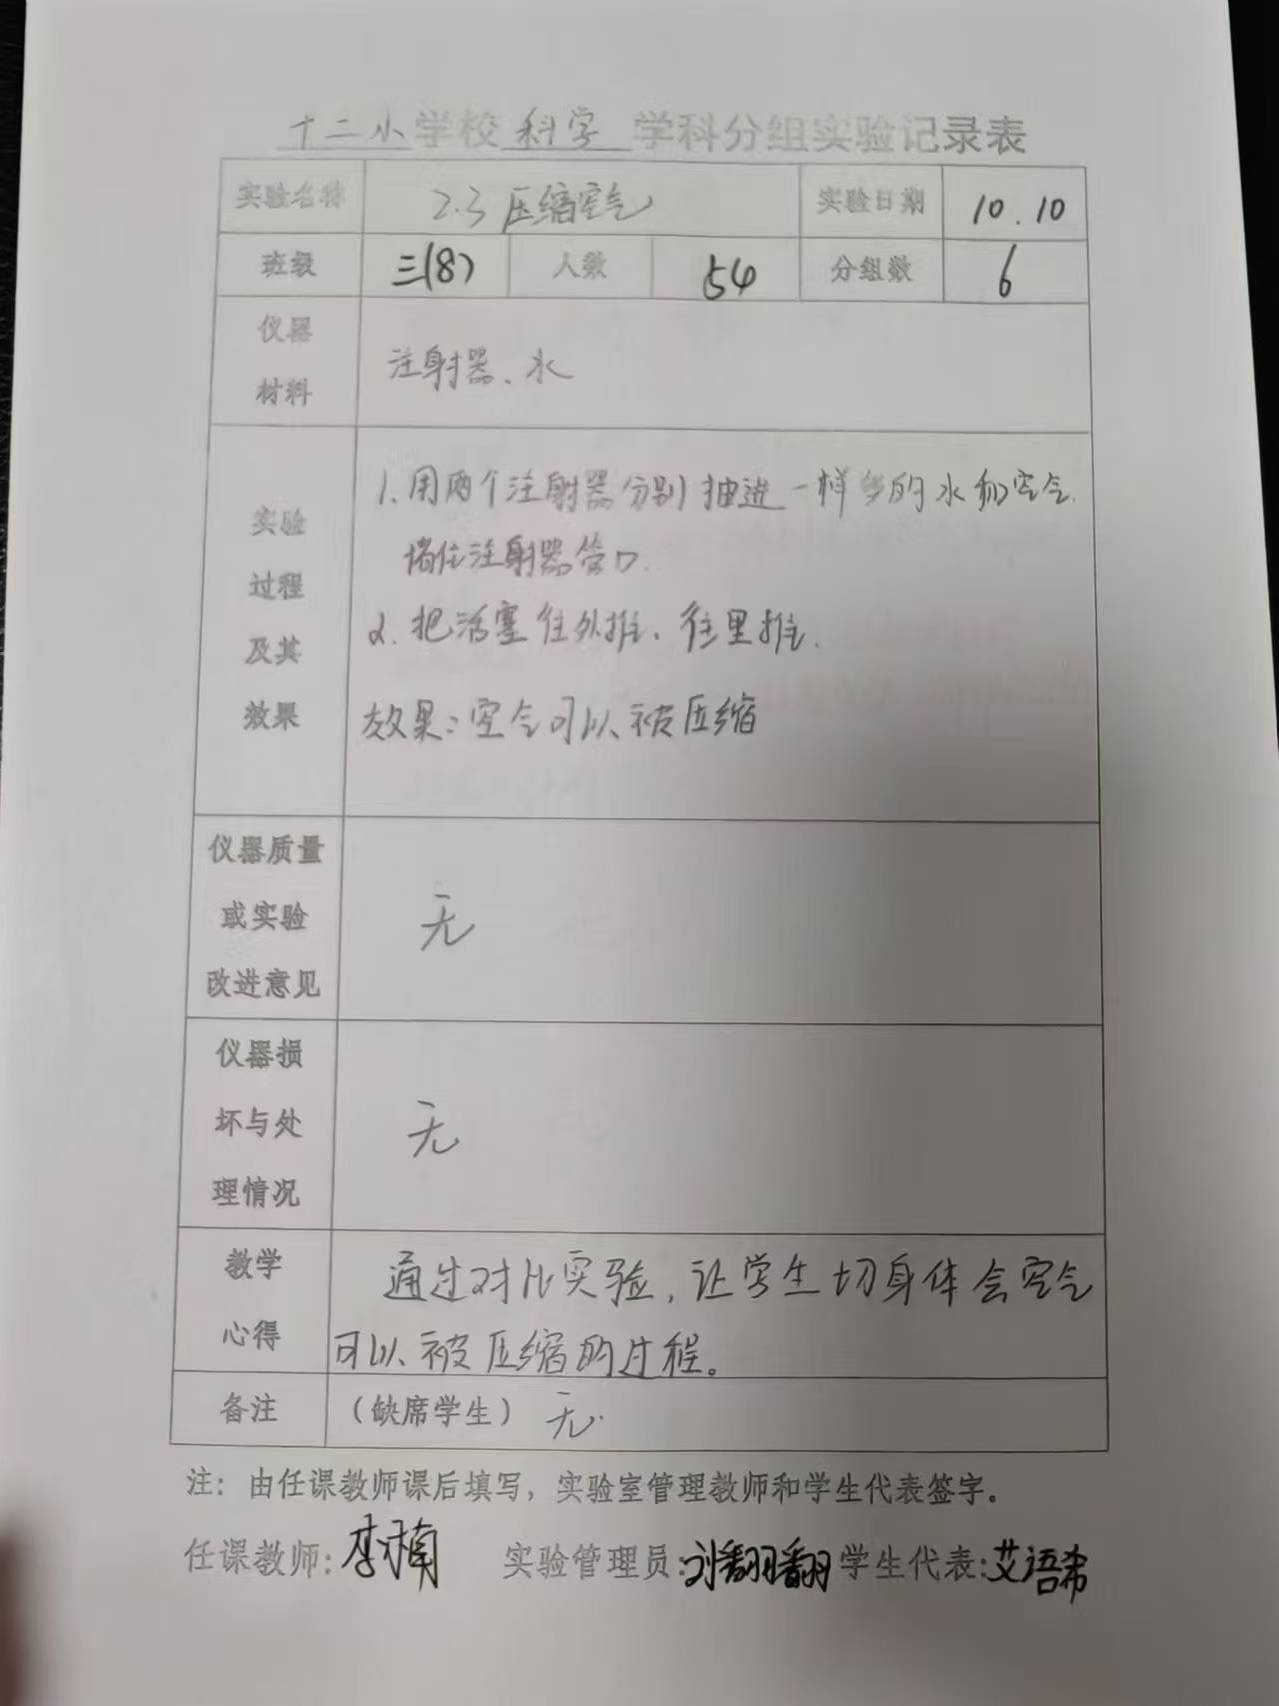 十二小学校 科学 学科分组实验记录表
实验名称 2.3 压缩空气 实验日期 10.10
班级 三(8) 人数 54 分组数 6
仪器
材料
注射器、水
实验
过程
及其
效果
1.用两个注射器分别抽进一样多的水和空气.
堵住注射器管口.
2.把活塞往外推、往里推.
效果:空气可以被压缩
仪器质量
或实验
改进意见
无
仪器损
坏与处
理情况
无
教学
心得
通过对比实验,让学生切身体会空气
可以被压缩的过程。
备注 (缺席学生) 无.
注:由任课教师课后填写,实验室管理教师和学生代表签字。
任课教师:李楠 实验管理员:刘翻翻 学生代表:艾语希